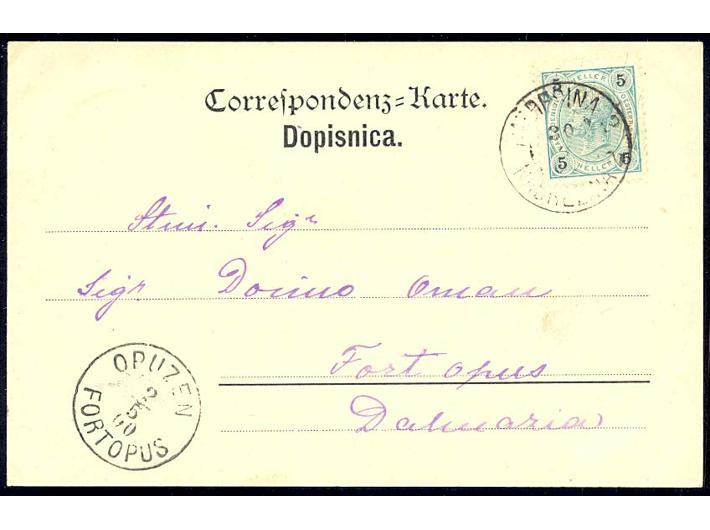 Correspondenz=Karte.
Dopisnica.
5 HELLER 5
5 HELLER 5
Stim. Sigr
Sigr Donino Oman
Fort Opus
Dalmazia
OPUZEN
2
5
00
FORTOPUS